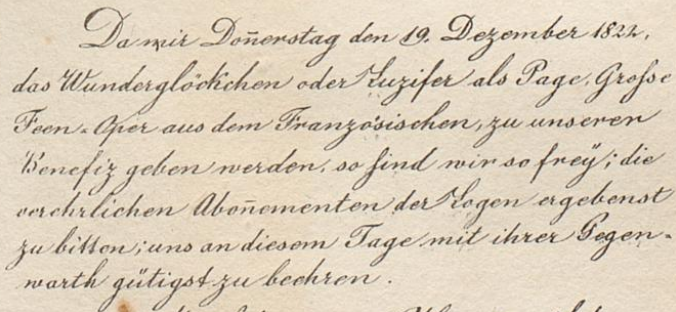 Da wir Don̄erstag den 19. Dezember 1822,
das Wunderglöckchen oder Luzifer als Page, Grosse
Feen-Oper aus dem Französischen, zu unserer
Benefiz geben werden, so sind wir so freÿ; die
verehrlichen Abon̄ementen der Logen ergebenst
zu bitten; uns an diesem Tage mit ihrer Gegen-
warth gütigst zu beehren.